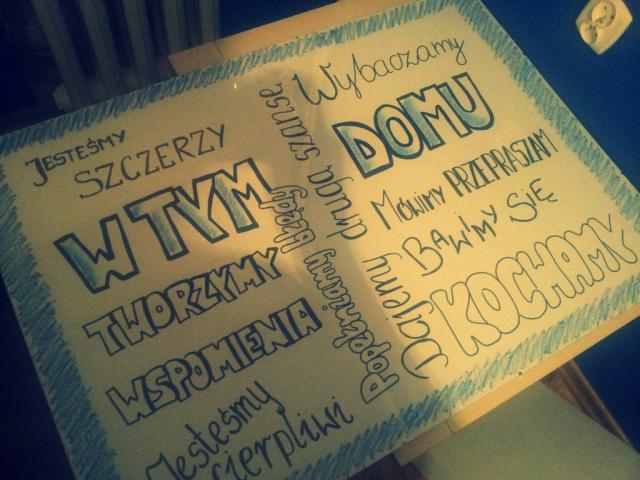 JESTEŚMY
SZCZERZY
W TYM
TWORZYMY
WSPOMIENIA
Jesteśmy
cierpliwi
Popełniamy błędy
Dajemy drugą szansę.
Wybaczamy
DOMU
MÓWIMY PRZEPRASZAM
BAWIMY SIĘ
KOCHAMY